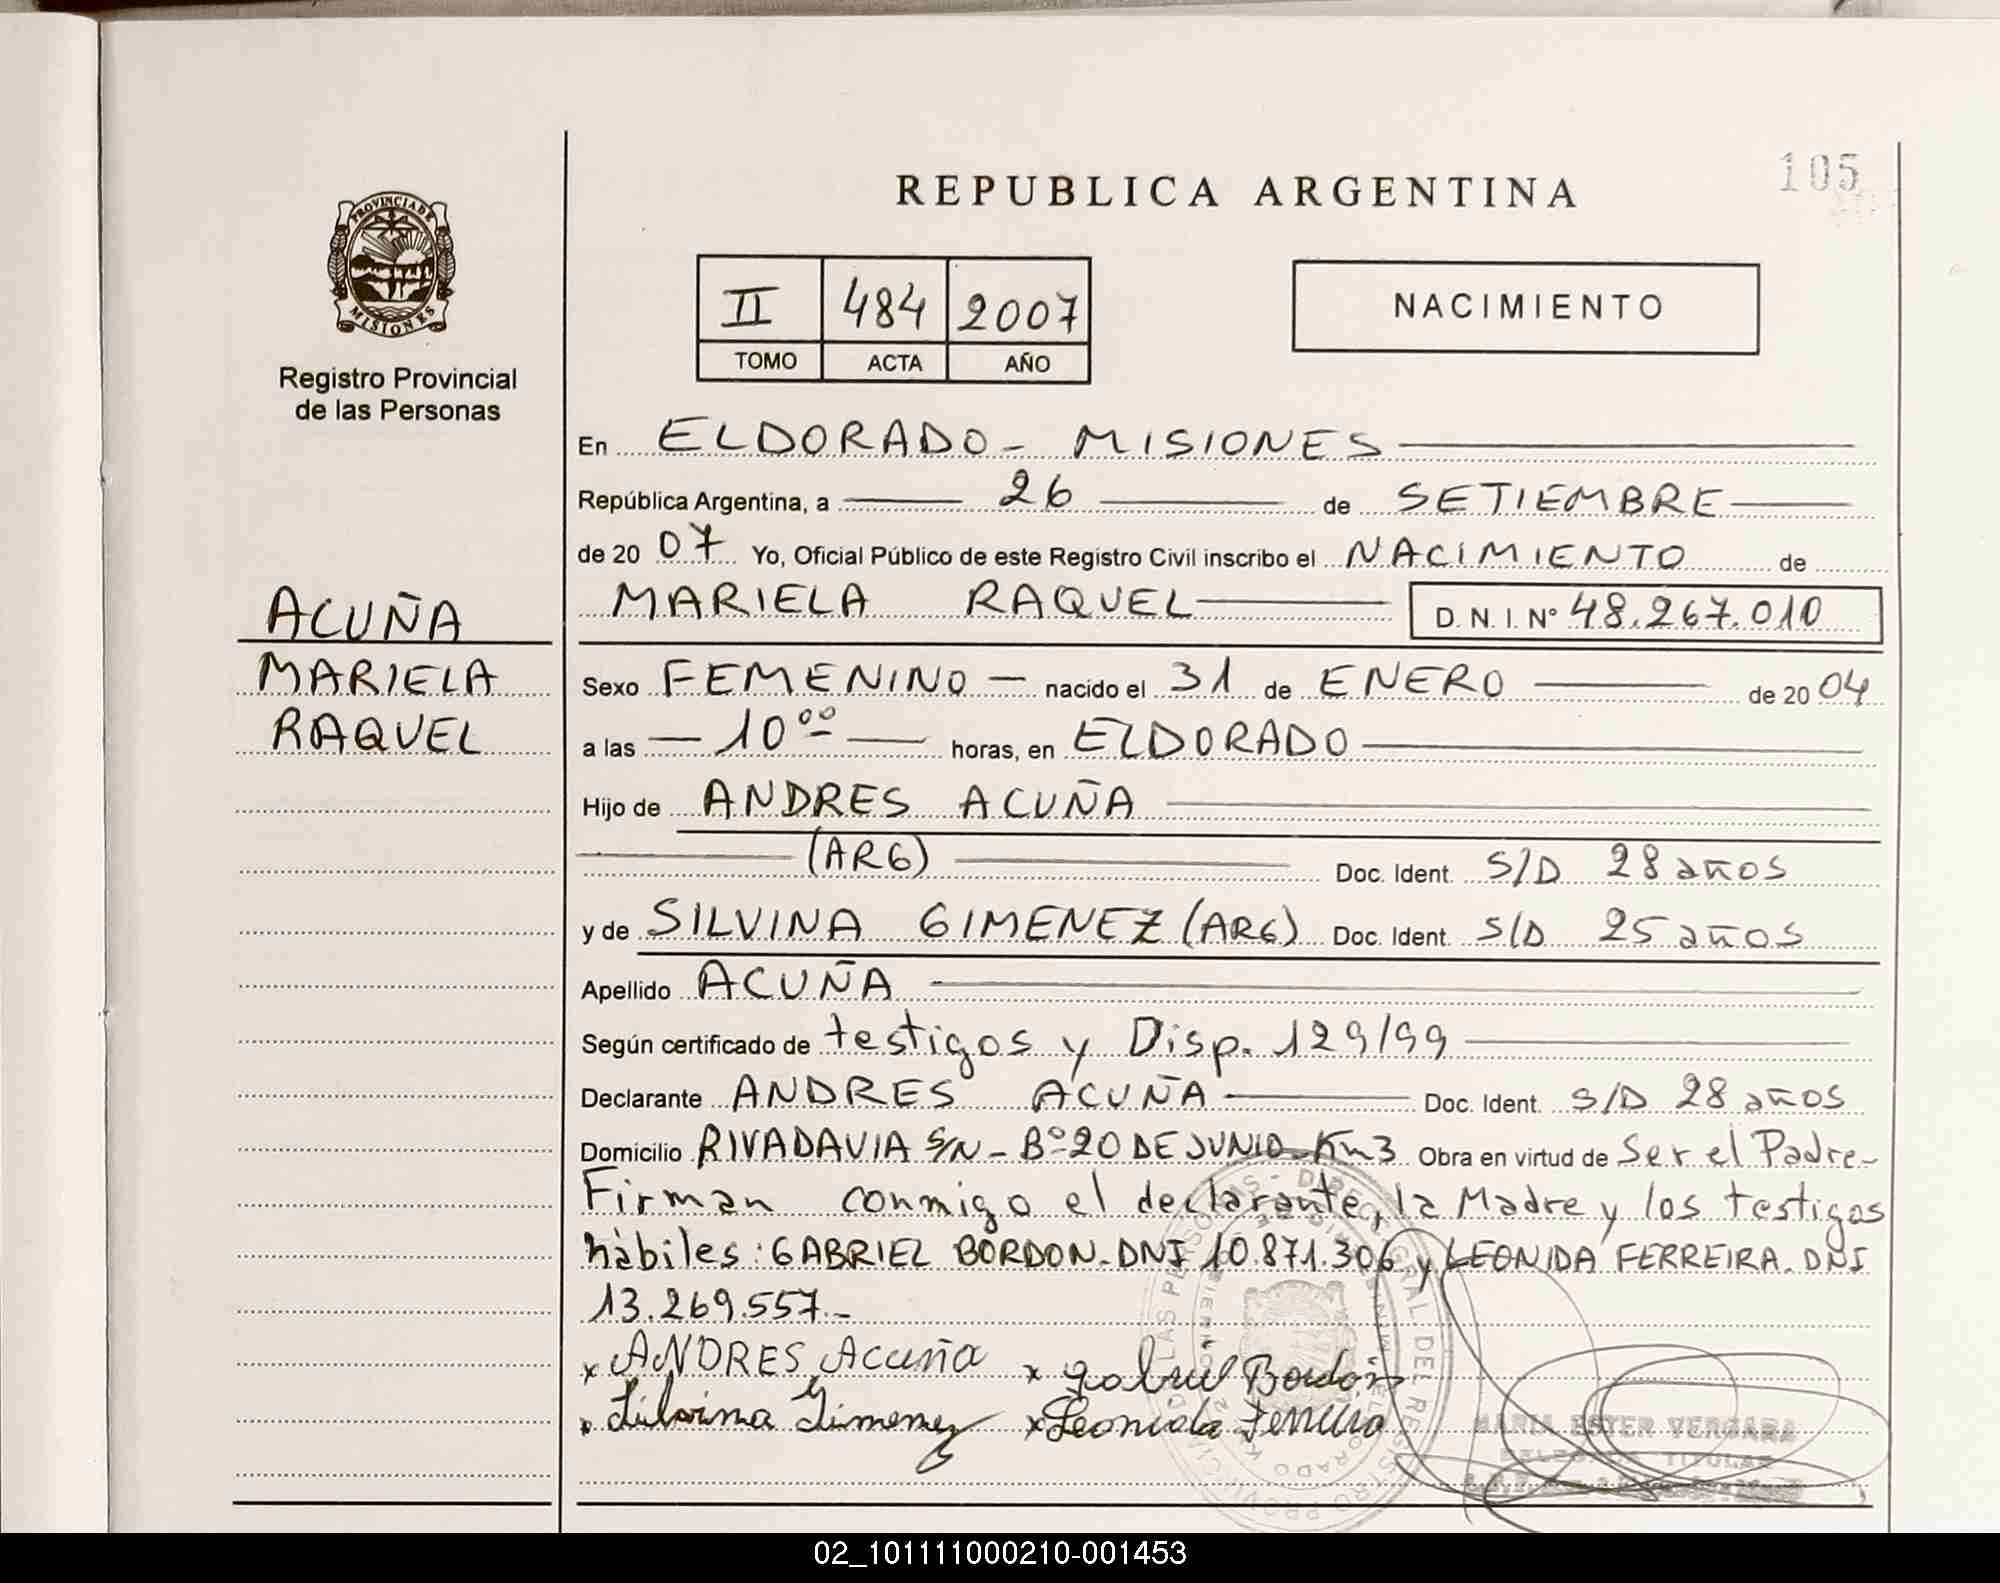 REPUBLICA ARGENTINA
105
PROVINCIA DE
MISIONES
Registro Provincial
de las Personas
II 484 2007
TOMO ACTA AÑO
NACIMIENTO
ACUÑA
MARIELA
RAQUEL
En ELDORADO - MISIONES
República Argentina, a 26 de SETIEMBRE
de 20 07 Yo, Oficial Público de este Registro Civil inscribo el NACIMIENTO de
MARIELA RAQUEL D. N. I. Nº 48.267.010
Sexo FEMENINO nacido el 31 de ENERO de 20 04
a las 10 ºº horas, en ELDORADO
Hijo de ANDRES ACUÑA
(ARG) Doc. Ident. S/D 28 años
y de SILVINA GIMENEZ (ARG) Doc. Ident. S/D 25 años
Apellido ACUÑA
Según certificado de testigos y Disp. 129/99
Declarante ANDRES ACUÑA Doc. Ident. S/D 28 años
Domicilio RIVADAVIA S/N - Bº 20 DE JUNIO - Km 3 Obra en virtud de Ser el Padre-
Firman conmigo el declarante, la Madre y los testigos
hàbiles: GABRIEL BORDON. DNI 10.871.306 y LEONIDA FERREIRA. DNI
13.269.557.-
x ANDRES Acuña x gabriel Bordón
x Silvina Gimenez x Leonida Ferreira
MARIA ESTER VERGARA
TITULAR
02_101111000210-001453